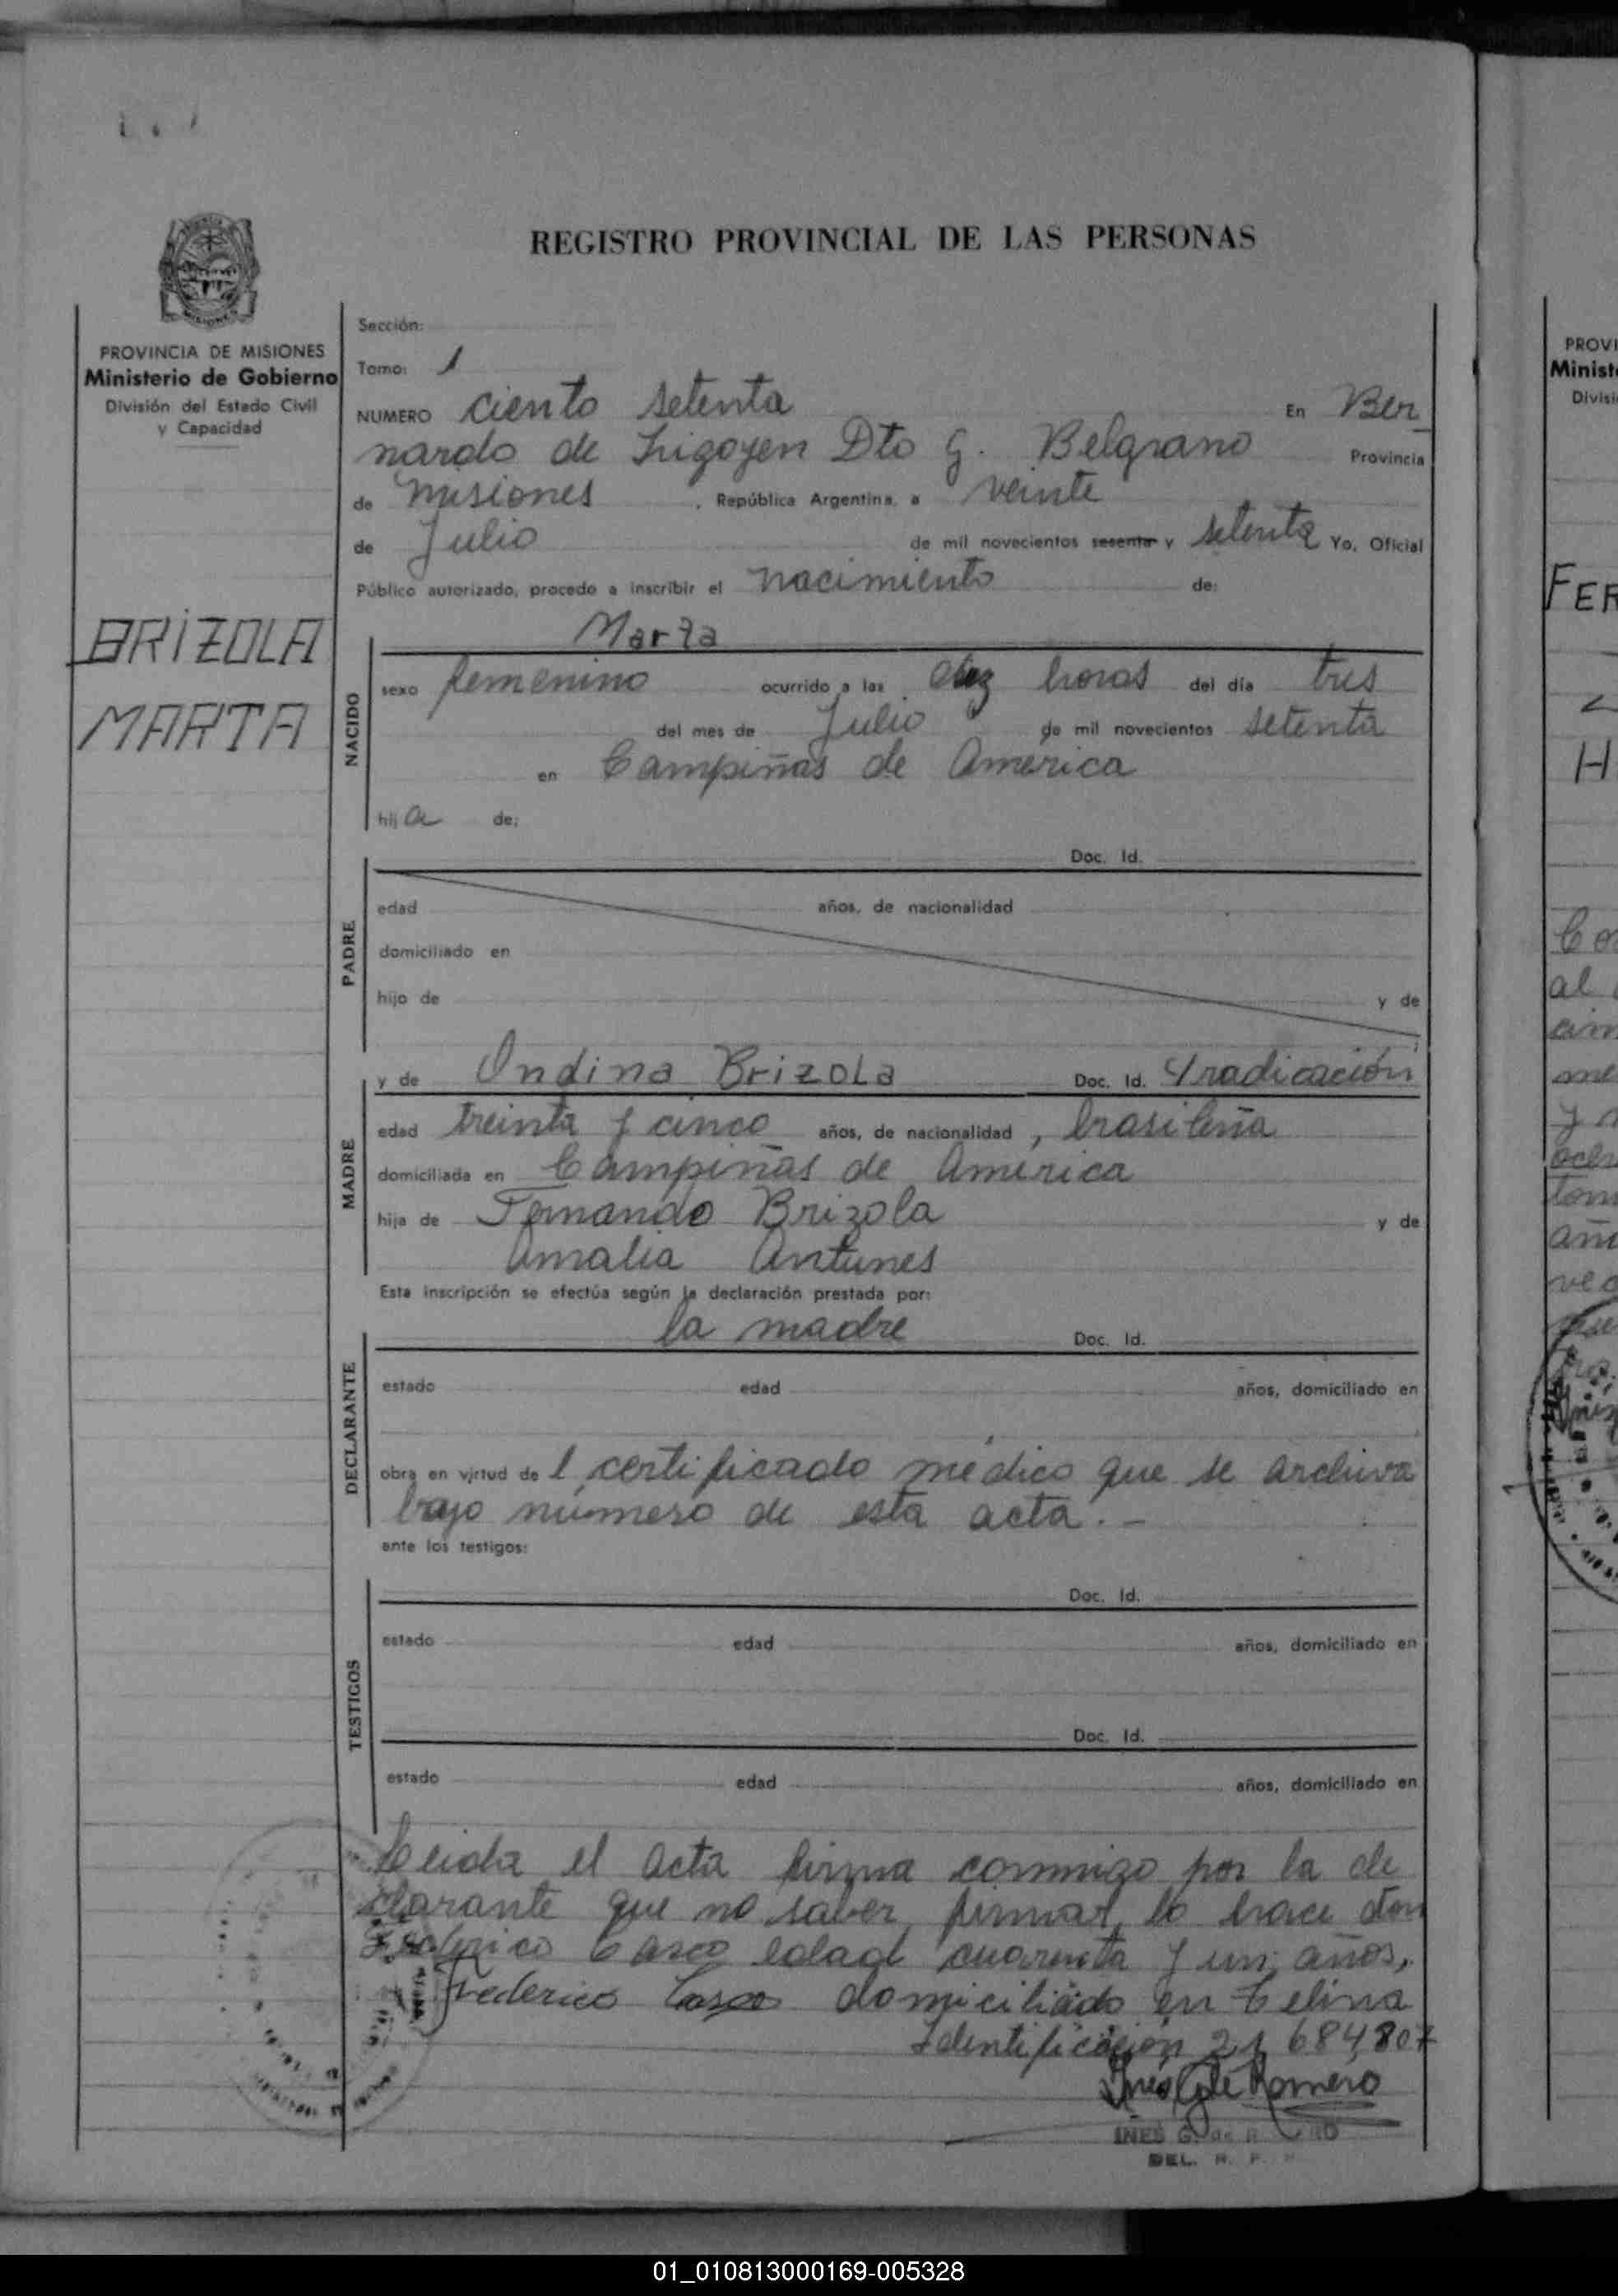 REGISTRO PROVINCIAL DE LAS PERSONAS
PROVINCIA DE MISIONES
Ministerio de Gobierno
División del Estado Civil
y Capacidad
BRIZOLA
MARTA
Sección:
Tomo: 1
NUMERO ciento setenta En Ber
nardo de Irigoyen Dto G. Belgrano Provincia
de Misiones , República Argentina, a veinte
de Julio de mil novecientos sesenta y setenta Yo, Oficial
Público autorizado, procedo a inscribir el nacimiento de:
NACIDO
Marta
sexo femenino ocurrido a las diez horas del día tres
del mes de Julio de mil novecientos setenta
en Campiñas de America
hija de:
PADRE
Doc. Id.
edad años, de nacionalidad
domiciliado en
hijo de y de
MADRE
y de Ondina Brizola Doc. Id. Yradicación
edad treinta y cinco años, de nacionalidad , brasileña
domiciliada en Campiñas de América
hija de Fernando Brizola y de
Amalia Antunes
Esta inscripción se efectúa según la declaración prestada por:
DECLARANTE
la madre Doc. Id.
estado edad años, domiciliado en
obra en virtud de l certificado médico que se archiva
bajo número de esta acta. -
ante los testigos:
TESTIGOS
Doc. Id.
estado edad años, domiciliado en
Doc. Id.
estado edad años, domiciliado en
Leida el acta firma conmigo por la de
clarante que no saber firmar, lo hace don
Federico Casco edad cuarenta y un años,
Federico Casco domiciliado en Celina
Identificación 21 684,807
Inés G de Romero
INES G. de R RO
DEL. R. P.
PROVI
Minist
Divisi
FER
H
Co
al
cim
me
y
tom
01_010813000169-005328